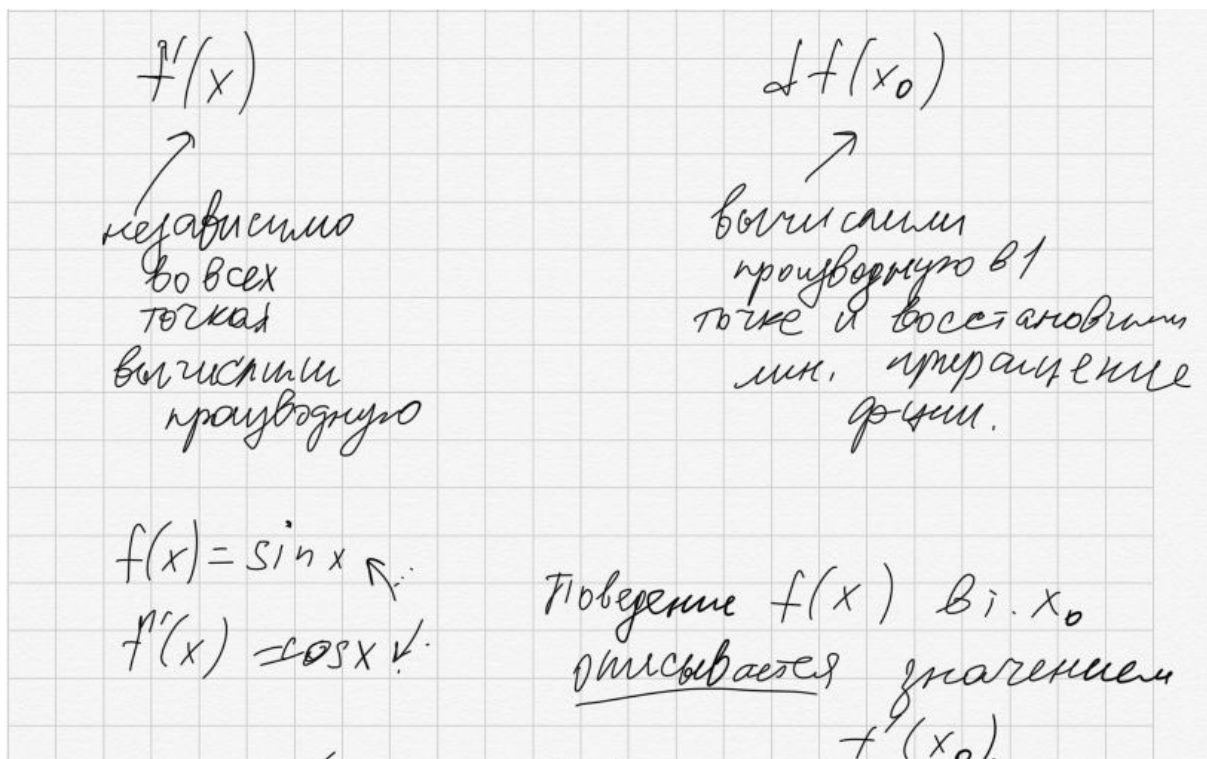 f'(x)
независимо
во всех
точках
вычислили
производную
df(x₀)
вычислили
производную в 1
точке и восстановили
лин. приращение
ф-ции.
f(x) = sin x
f'(x) = cos x
Поведение f(x) в т. x₀
описывается значением
f'(x₀)